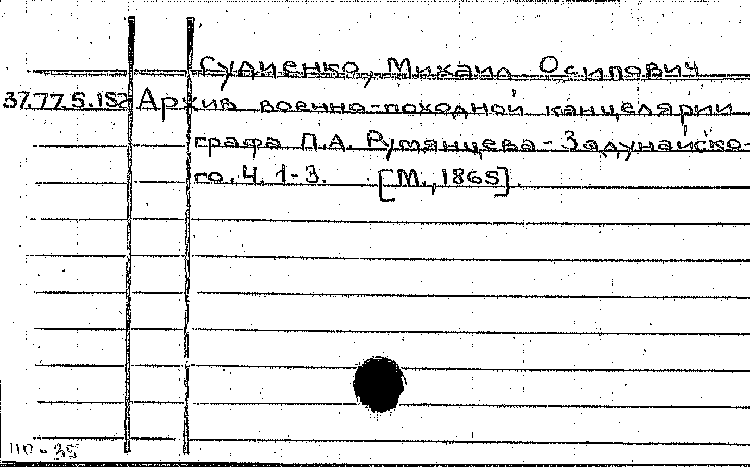 Судиенко, Михаил Осипович
37.77.5.152 Архив военно-походной канцелярии
графа П.А. Румянцева-Задунайско-
го. Ч. 1-3. [М., 1865].